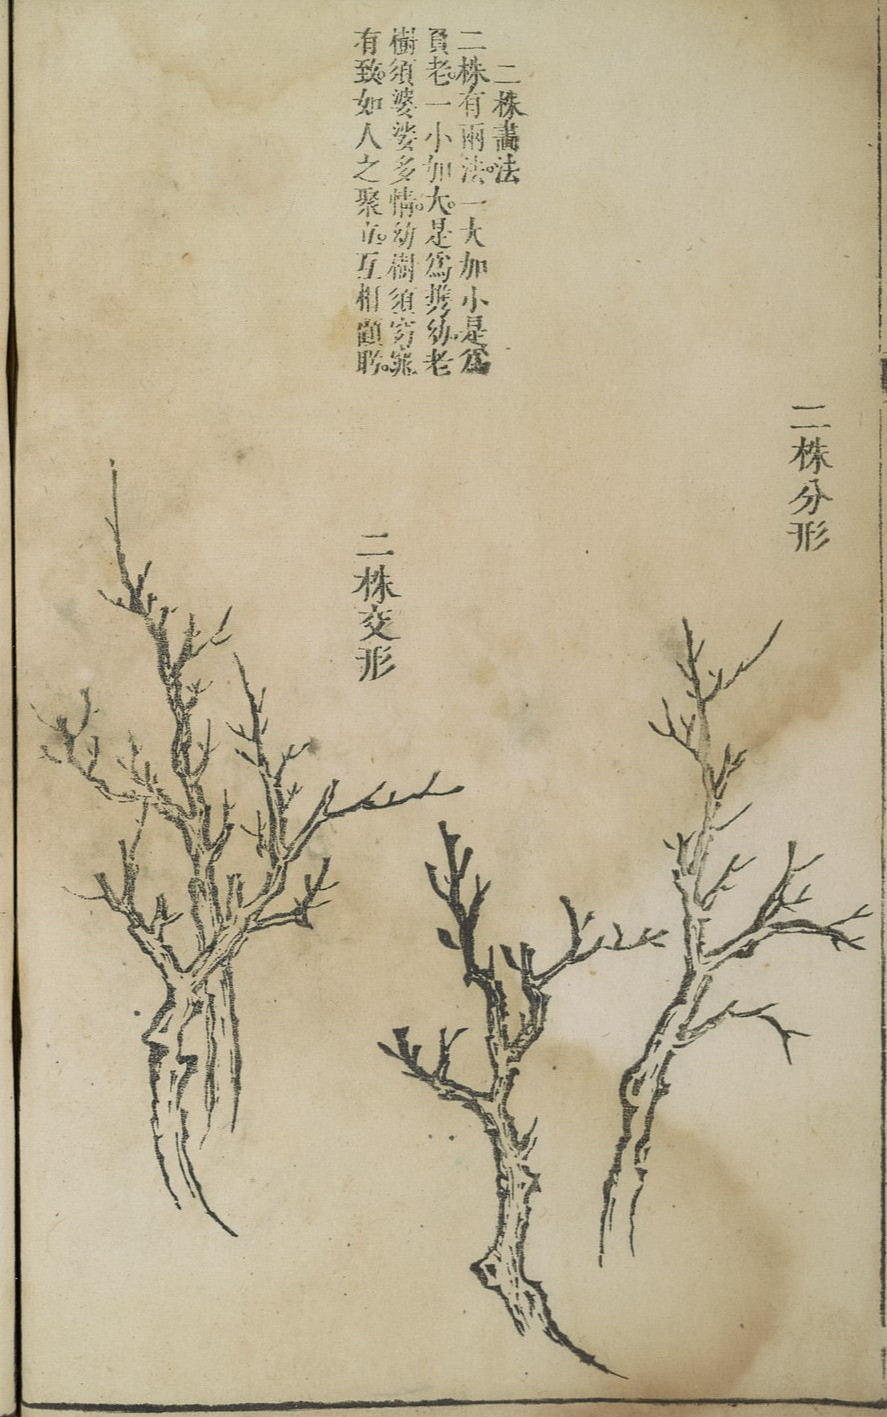 二株分形
二株畫法
二株有兩法。一大加小是爲
負老。一小加大。是爲携幼。老
樹須婆娑多情。幼樹須窈窕
有致。如人之聚立。互相顧盼。
二株交形